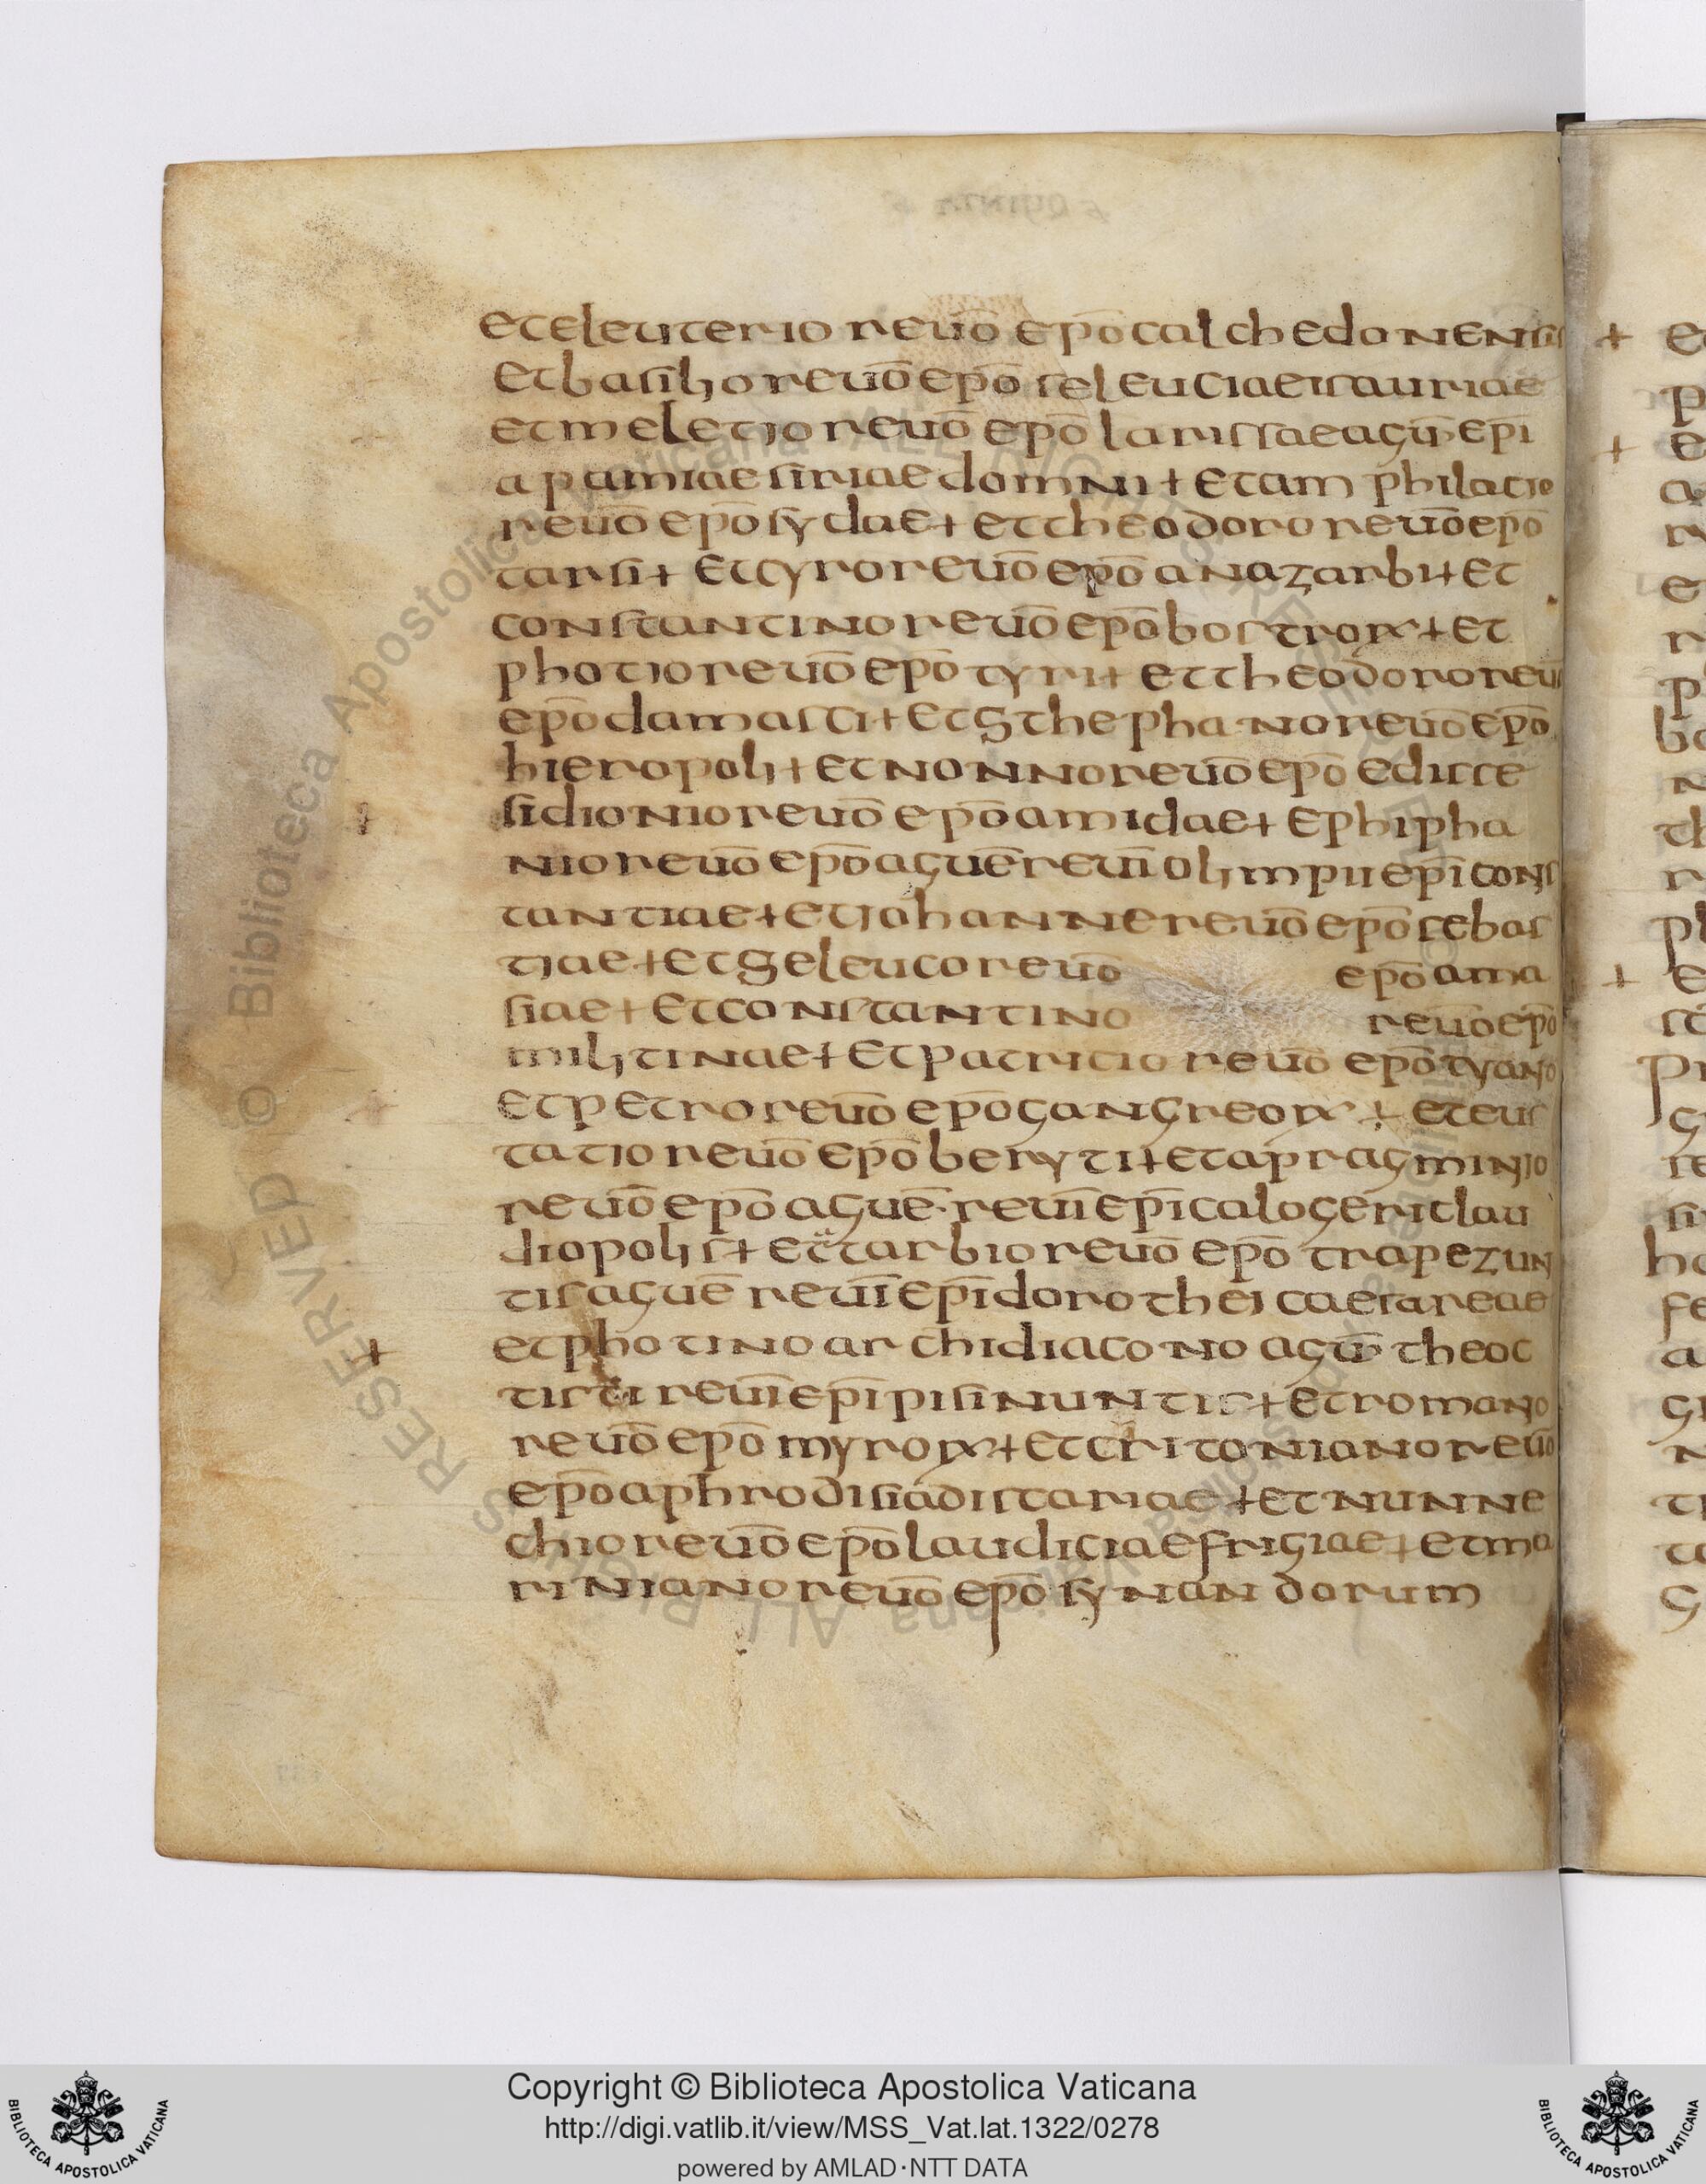 eteleuterio reuō epō calchedonensis
et basilio reuō epō seleuciae isauriae
et meletio reuō epō larissae agū epī
apamiae siriae domni + et amphilatio
reuō epō sydae + et theodoro reuō epō
tarsi + et cyro reuō epō anazarbi + et
constantino reuō epō bostrorx + et
photio reuō epō tyri + et theodoro reuō
epō damasci + et sthephano reuō epō
hieropoli + et nonno reuō epō edisse
sidionio reuō epō amidae + ephipha
nio reuō epō aguē reuī olimpii epī cons
tantiae + et iohanne reuō epō sebas
tiae + et seleuco reuō epō ama
siae + et constantino reuō epō
militinae + et patricio reuō epō tyano
et petro reuō epō gangreorx + et eus
tatio reuō epō beryti + et apragminio
reuō epō aguē reuī epī calogeri tlau
diopolis + et tarbio reuō epō trapezun
tis aguē reuī epī dorothei caesareae
+ et photino archidiacono agū theoc
tisti reuī epī pisinuntis + et romano
reuō epō myrorx + et critoniano reuō
epō aphrodisiadis cariae + et nunne
chio reuō epō laudiciae frigiae + et ma
riniano reuō epō synandorum
Copyright © Biblioteca Apostolica Vaticana
http://digi.vatlib.it/view/MSS_Vat.lat.1322/0278
powered by AMLAD·NTT DATA
BIBLIOTECA APOSTOLICA VATICANA
BIBLIOTECA APOSTOLICA VATICANA